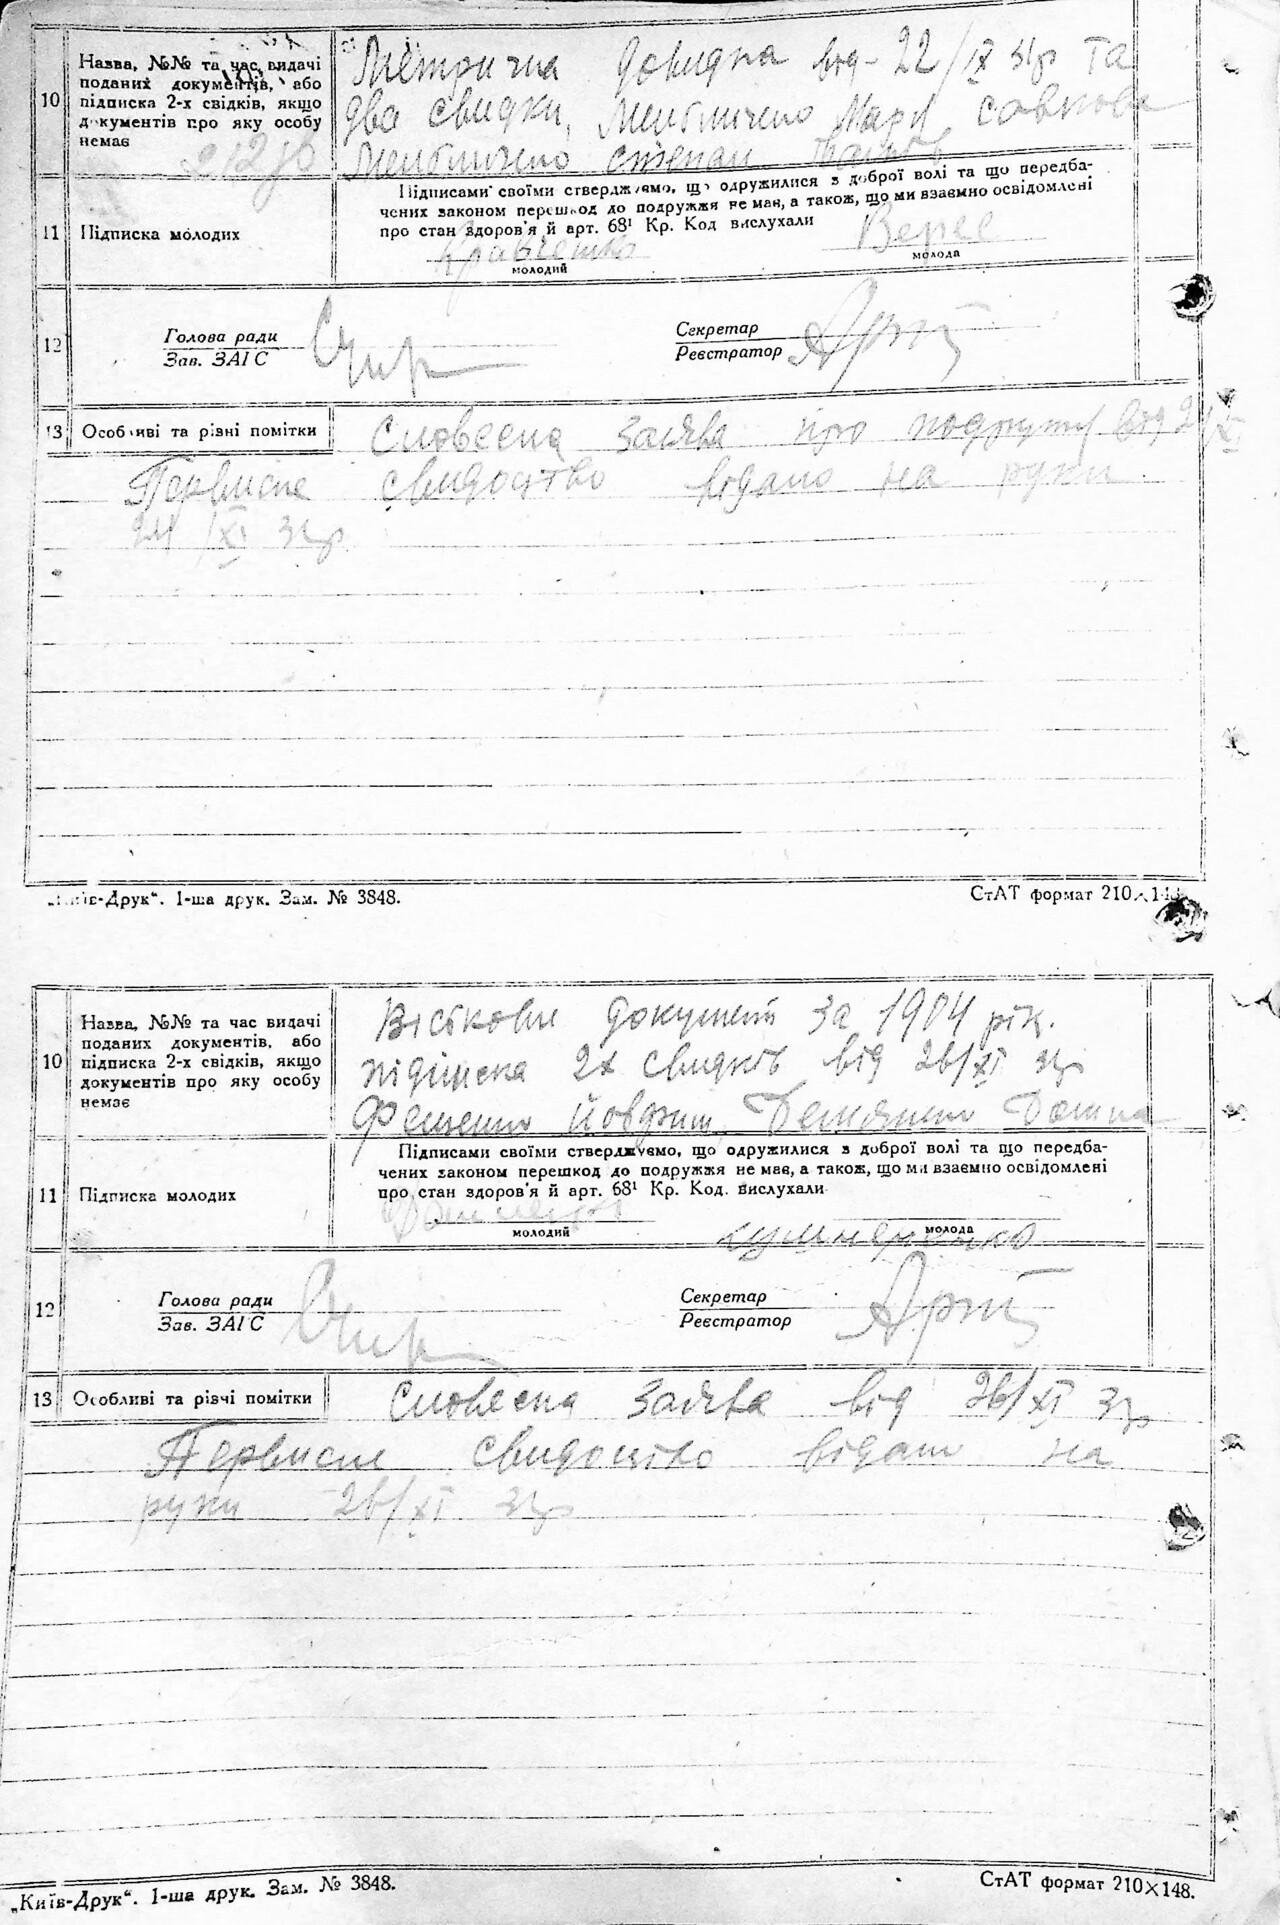 10
Назва, №№ та час видачі
поданих документів, або
підписка 2-х свідків, якщо
документів про яку особу
немає
Метрична довидка від 22/IX 31р та
два свидки, Марія
Степан
11
Підписка молодих
Підписами своїми стверджуємо, що одружилися з доброї волі та що передба-
чених законом перешкод до подружжя не має, а також, що ми взаємно освідомлені
про стан здоров'я й арт. 68¹ Кр. Код вислухали
Кравченко
молодий
Верес
молода
12
Голова ради
Зав. ЗАГС
Секретар
Реєстратор
13
Особливі та різні помітки
Словесна заява про від
Первисне свидоцтво відано на руки
24/XI 31р
„Київ-Друк“. 1-ша друк. Зам. № 3848.
СтАТ формат 210×148
10
Назва, №№ та час видачі
поданих документів, або
підписка 2-х свідків, якщо
документів про яку особу
немає
документ за 1904 рік.
підписка 2х свидків від 26/XI 31р
11
Підписка молодих
Підписами своїми стверджуємо, що одружилися з доброї волі та що передба-
чених законом перешкод до подружжя не має, а також, що ми взаємно освідомлені
про стан здоров'я й арт. 68¹ Кр. Код. вислухали
молодий
молода
12
Голова ради
Зав. ЗАГС
Секретар
Реєстратор
13
Особливі та різчі помітки
Словесна заява від 26/XI 31р
Первисне свидоцтво відано на
руки 26/XI 31р
„Київ-Друк“. 1-ша друк. Зам. № 3848.
СтАТ формат 210×148.